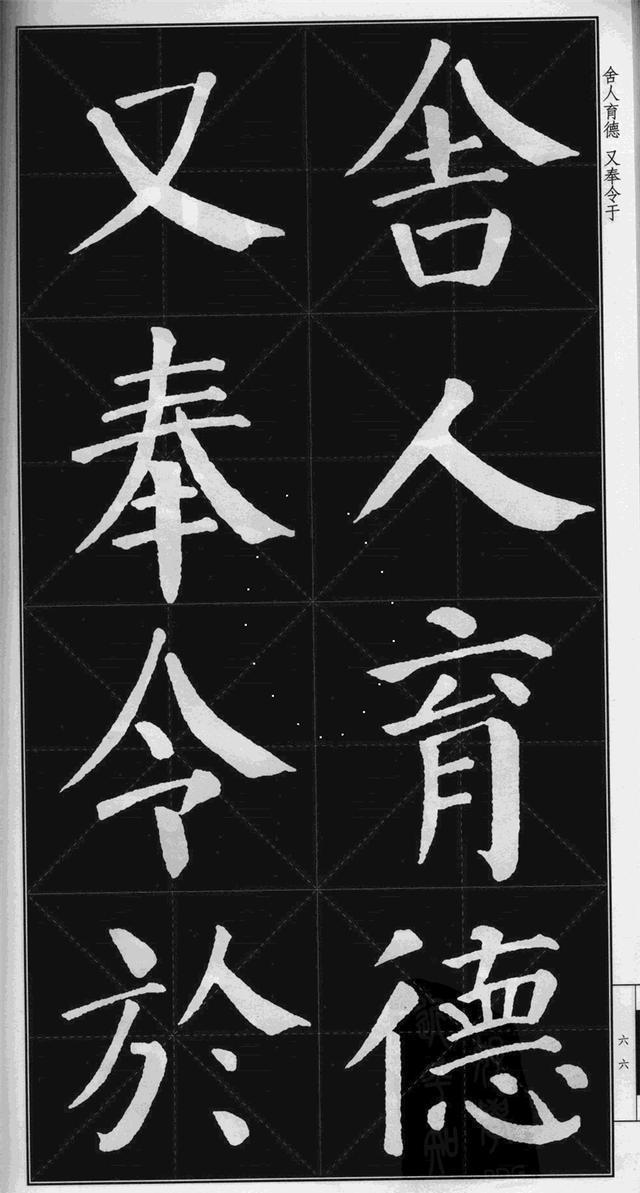 舍人育德 又奉令于
舍人育德
又奉令於
六六